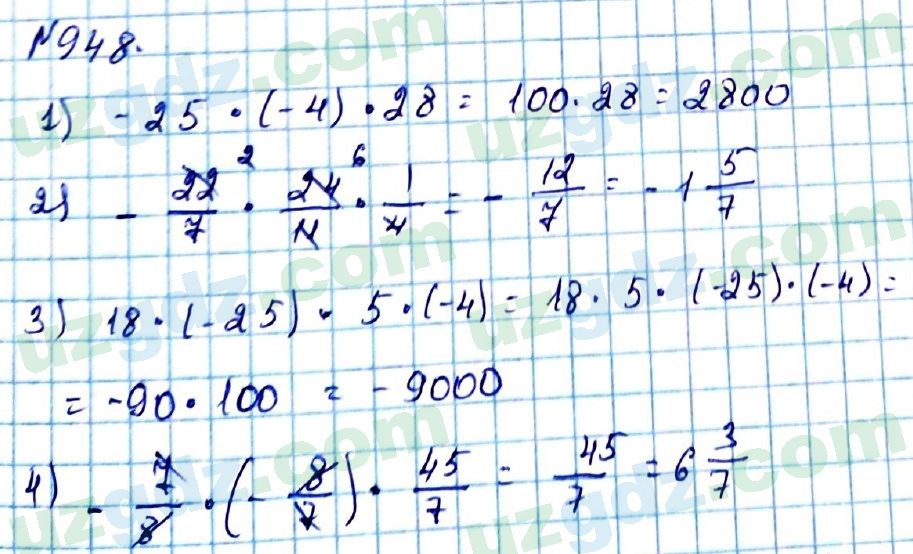 №948.
1) -25 · (-4) · 28 = 100 · 28 = 2800
2) - 22/7 ² · 24/11 ⁶ · 1/4 = - 12/7 = - 1 5/7
3) 18 · (-25) · 5 · (-4) = 18 · 5 · (-25) · (-4) =
= -90 · 100 = - 9000
4) - 7/8 · (- 8/7) · 45/7 = 45/7 = 6 3/7
uzgdz.com
uzgdz.com
uzgdz.com
uzgdz.com
uzgdz.com
uzgdz.com